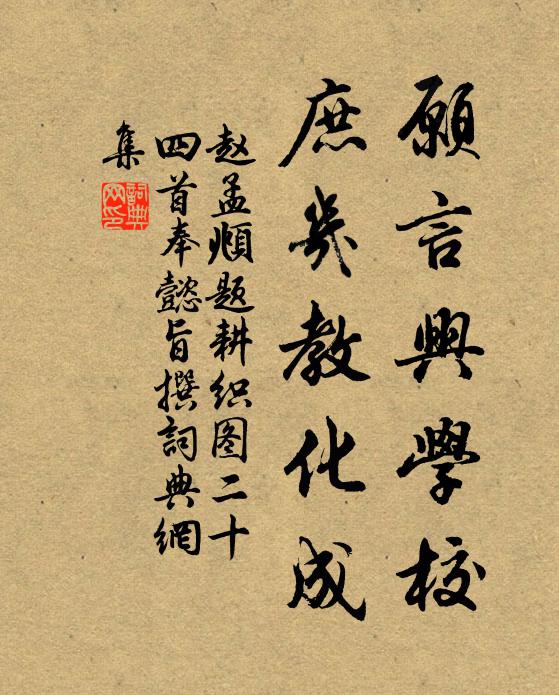 願言興學校
庶幾教化成
赵孟頫题耕织图二十
四首奉懿旨撰詞典網
集
詞典
网印